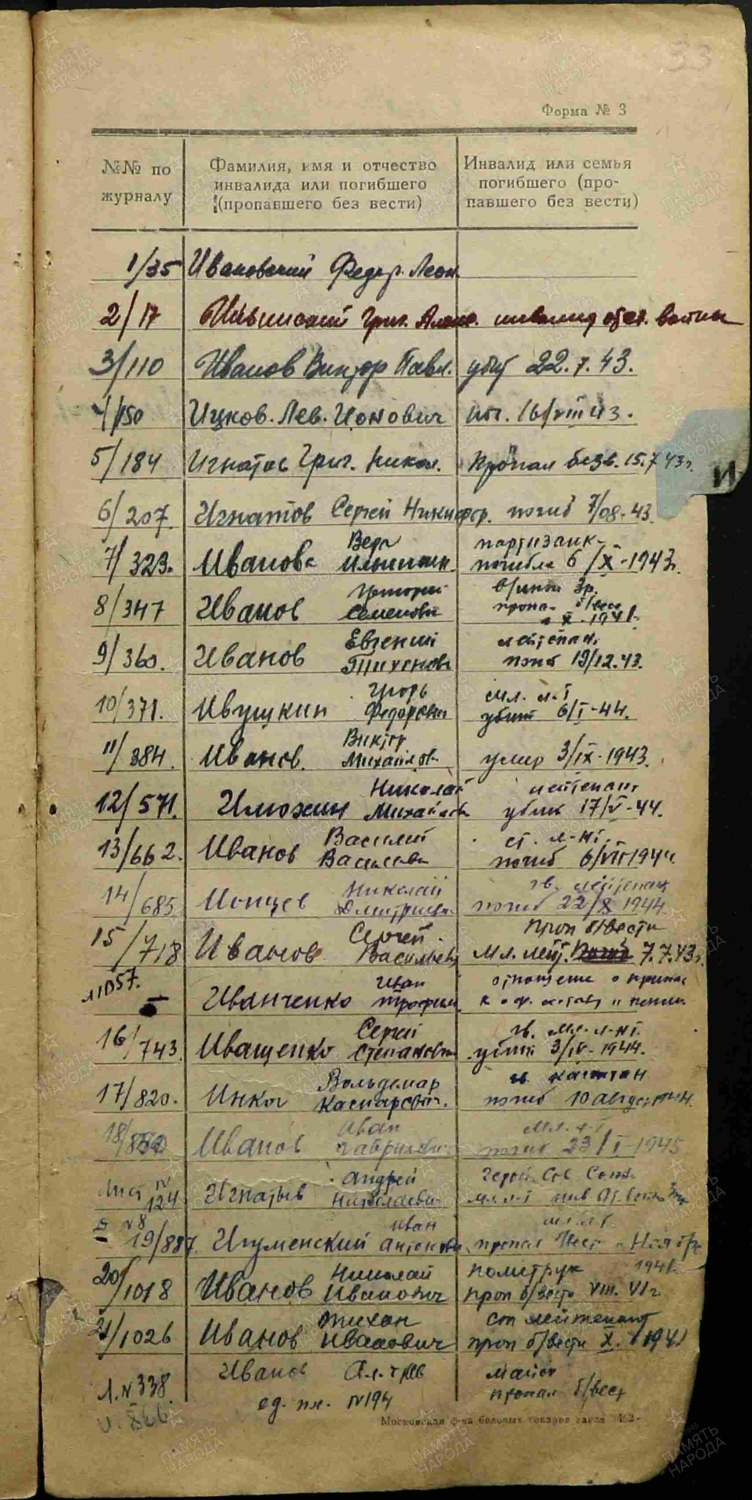 33
Форма № 3
№№ по журналу
Фамилия, имя и отчество инвалида или погибшего (пропавшего без вести)
Инвалид или семья погибшего (пропавшего без вести)
1/35 Ивановский Федор Леон
2/17 Григ. инвалид отеч. войны
3/110 Иванов Виктор Павл. убит 22.7.43.
4/150 Ицков. Лев. Ионович 16/VIII 43.
5/184 Игнатов Григ. Никол. Пропал безв. 15.7.43г.
И
6/207. Игнатов Сергей Никифор. погиб 7/08-43
7/323. Иванова Вера партизанк. погибла 6/X-1943г.
8/347 Иванов Григорий Семенови пропал б/вест X-1941г.
9/360. Иванов Евгений Тихонов лейтенан. погиб 19/12.43.
10/371. Ивушкин Игорь Федорови мл. л-т убит 6/I-44.
11/384. Иванов. Виктор Михайлов умер 3/IX-1943.
12/571. Илюхин Николай Михайлов лейтенант убит 17/V-44.
13/662. Иванов Василий Васильеви ст. л-нт. погиб 6/VII 1944
14/685 Николай Дмитриеви гв. лейтенант погиб 22/X 1944
15/718 Иванов Сергей Васильеви Проп б/вести мл. лейт. 7.7.43г.
Иванченко Иван Трофим.
16/743. Иващенко Сергей Степанович гв. мл. л-нт. убит 3/IV-1944.
17/820. Вольдемар Каспарович гв капитан погиб 10 август 44.
18/850 Иванов Иван Гаврилови мл. л-т погиб 23/I-1945
Лист IV 124 Игнатьев Андрей Николаеви Герой Сов Союз. мл. л-т инв От. войны
19/887. Игуменский Иван Антонови мл. л-т. пропал 1941г.
20/1018 Иванов Николай Иванович политрук проп б/вести VIII.
21/1026 Иванов Иванович лейтенант проп б/вести X. 1941
Л. № 338. Иванов майор пропал б/вест
и. 866. № 194
Московская ф-ка беловых товаров
ПАМЯТЬ НАРОДА